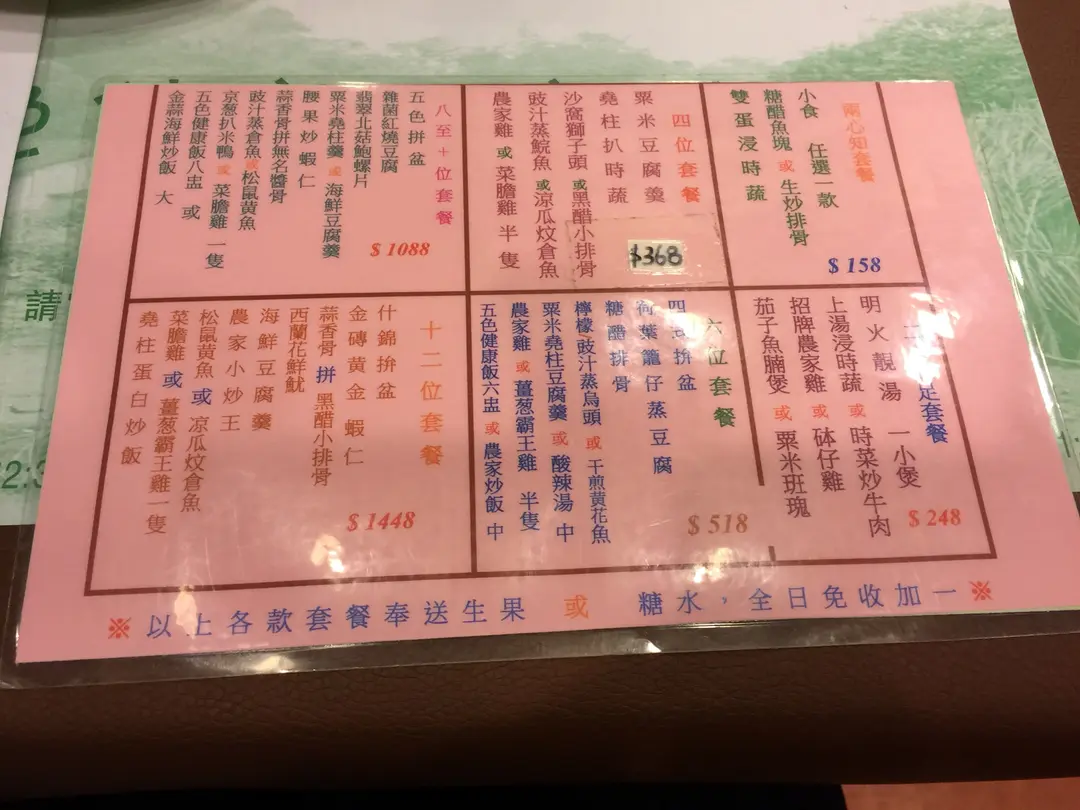 兩心知套餐
小食 任選一款
糖醋魚塊 或 生炒排骨
雙蛋浸時蔬
$ 158
四位套餐
粟米豆腐羹
堯柱扒時蔬
沙窩獅子頭 或 黑醋小排骨
豉汁蒸鯇魚 或 涼瓜炆倉魚
農家雞 或 菜膽雞 半隻
$368
八至十位套餐
五色拼盆
雜菌紅燒豆腐
翡翠北菇鮑螺片
粟米堯柱羹 或 海鮮豆腐羹
腰果炒蝦仁
蒜香骨拼無名醬骨
豉汁蒸倉魚 或 松鼠黄魚
京葱扒米鴨 或 菜膽雞 一隻
五色健康飯八盅 或
金蒜海鮮炒飯 大
$ 1088
足套餐
明火靚湯 一小煲
上湯浸時蔬 或 時菜炒牛肉
招牌農家雞 或 砵仔雞
茄子魚腩煲 或 粟米班塊
$ 248
六位套餐
四 拚盆
荷葉籠仔蒸豆腐
糖醋排骨
檸檬豉汁蒸烏頭 或 干煎黄花魚
粟米堯柱豆腐羹 或 酸辣湯 中
農家雞 或 薑葱霸王雞 半隻
五色健康飯六盅 或 農家炒飯 中
$ 518
十二位套餐
什錦拚盆
金磚黄金蝦仁
蒜香骨 拼 黑醋小排骨
西蘭花鮮魷
海鮮豆腐羹
農家小炒王
松鼠黄魚 或 凉瓜炆倉魚
菜膽雞 或 薑葱霸王雞一隻
堯柱蛋白炒飯
$ 1448
※以上各款套餐奉送生果 或 糖水，全日免收加一※
請